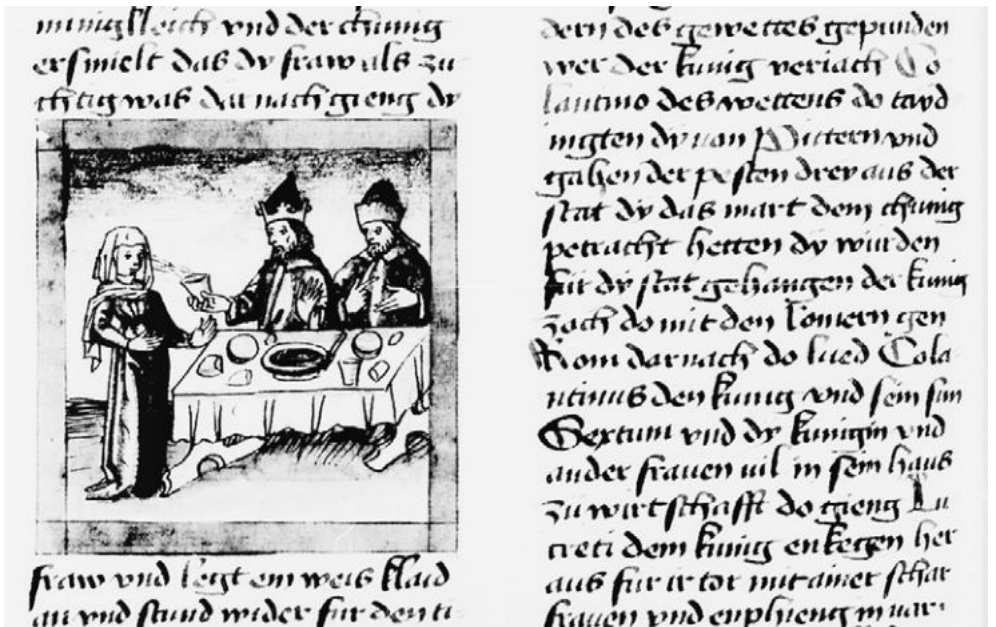 minigkleich vnd der chunig
ersmielt das dy fraw als zu
chtig was dar nach gieng dy
fraw vnd legt ein weis klaid
an vnd stund wider für den ti
dern des gewettes gepunden
wer der kunig veriach Co
lantino des wettens do tayd
ingten dy von Vittern vnd
gaben der pesten drey aus der
stat dy das mart dem chunig
petracht hetten dy wurden
für dy stat gehangen der kunig
zoch do mit den Romern gen
Rom darnach do lued Cola
ntinus den kunig vnd sein sun
Sextum vnd dy kunigin vnd
ander frauen vil in sein haus
zu wirtschafft do gieng Lu
creti dem kunig enkegen her
aus für ir tor mit ainer schar
frauen vnd enphieng in